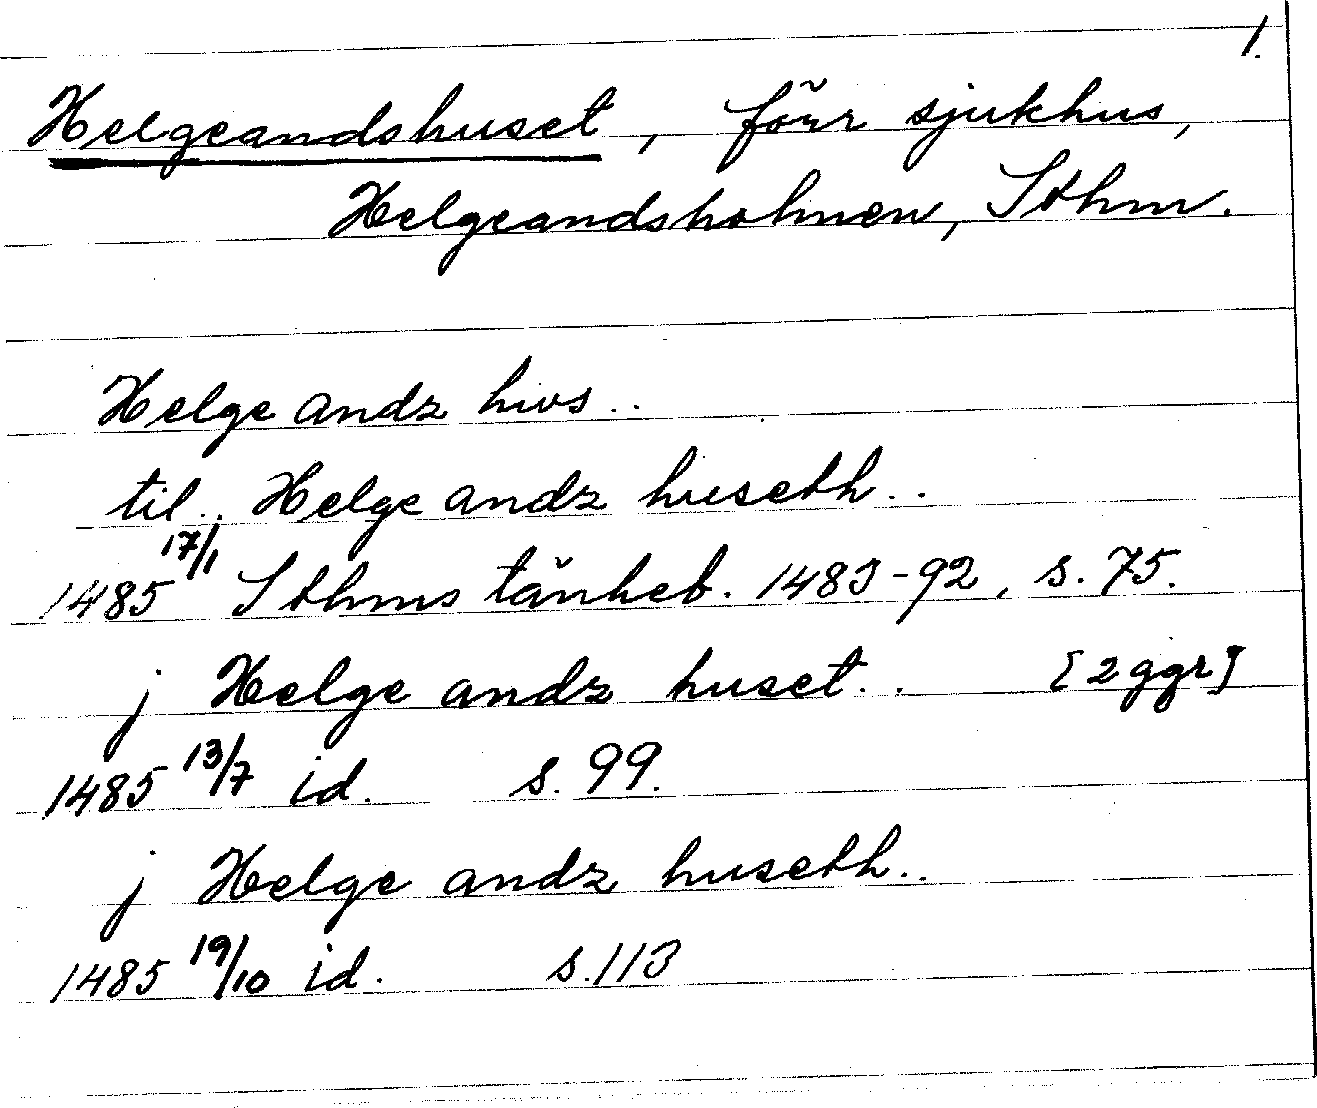 1.
Helgeandshuset, förr sjukhus,
Helgeandsholmen, Sthm.
Helge andz hws..
til.. Helge andz huseth..
1485 17/1 Sthms tänkeb. 1483-92, s. 75.
j Helge andz huset.. [2 ggr]
1485 13/7 id. s. 99.
j Helge andz huseth..
1485 19/10 id. s. 113